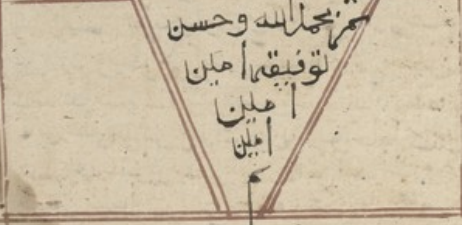 تم بحمد الله وحسن
توفيقه امين
امين
امين
م